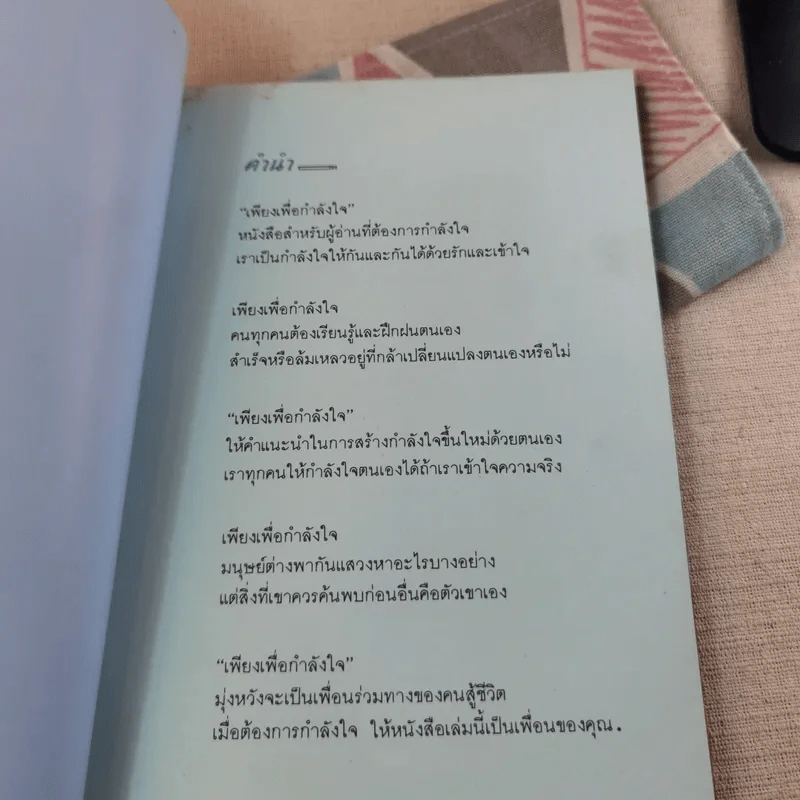 คำนำ
“เพียงเพื่อกำลังใจ”
หนังสือสำหรับผู้อ่านที่ต้องการกำลังใจ
เราเป็นกำลังใจให้กันและกันได้ด้วยรักและเข้าใจ
เพียงเพื่อกำลังใจ
คนทุกคนต้องเรียนรู้และฝึกฝนตนเอง
สำเร็จหรือล้มเหลวอยู่ที่กล้าเปลี่ยนแปลงตนเองหรือไม่
“เพียงเพื่อกำลังใจ”
ให้คำแนะนำในการสร้างกำลังใจขึ้นใหม่ด้วยตนเอง
เราทุกคนให้กำลังใจตนเองได้ถ้าเราเข้าใจความจริง
เพียงเพื่อกำลังใจ
มนุษย์ต่างพากันแสวงหาอะไรบางอย่าง
แต่สิ่งที่เขาควรค้นพบก่อนอื่นคือตัวเขาเอง
“เพียงเพื่อกำลังใจ”
มุ่งหวังจะเป็นเพื่อนร่วมทางของคนสู้ชีวิต
เมื่อต้องการกำลังใจ ให้หนังสือเล่มนี้เป็นเพื่อนของคุณ.